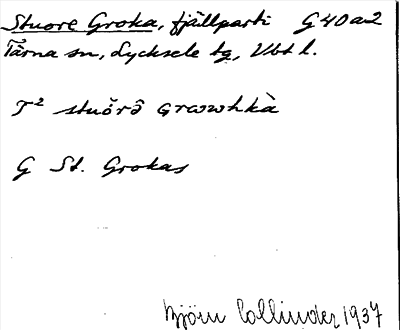 Stuore Groka, fjällparti G40a2
Tärna sn, Lycksele tg, Vbt l.
T² stuŏrâ Grɑwwhkà
G St. Grokas
Björn Collinder 1937